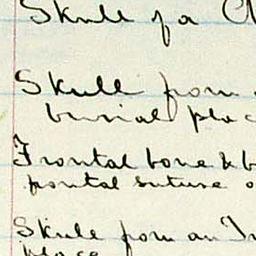 Skull of a
Skull from
burial plac
Frontal bone & b
frontal suture o
Skull from an In
place